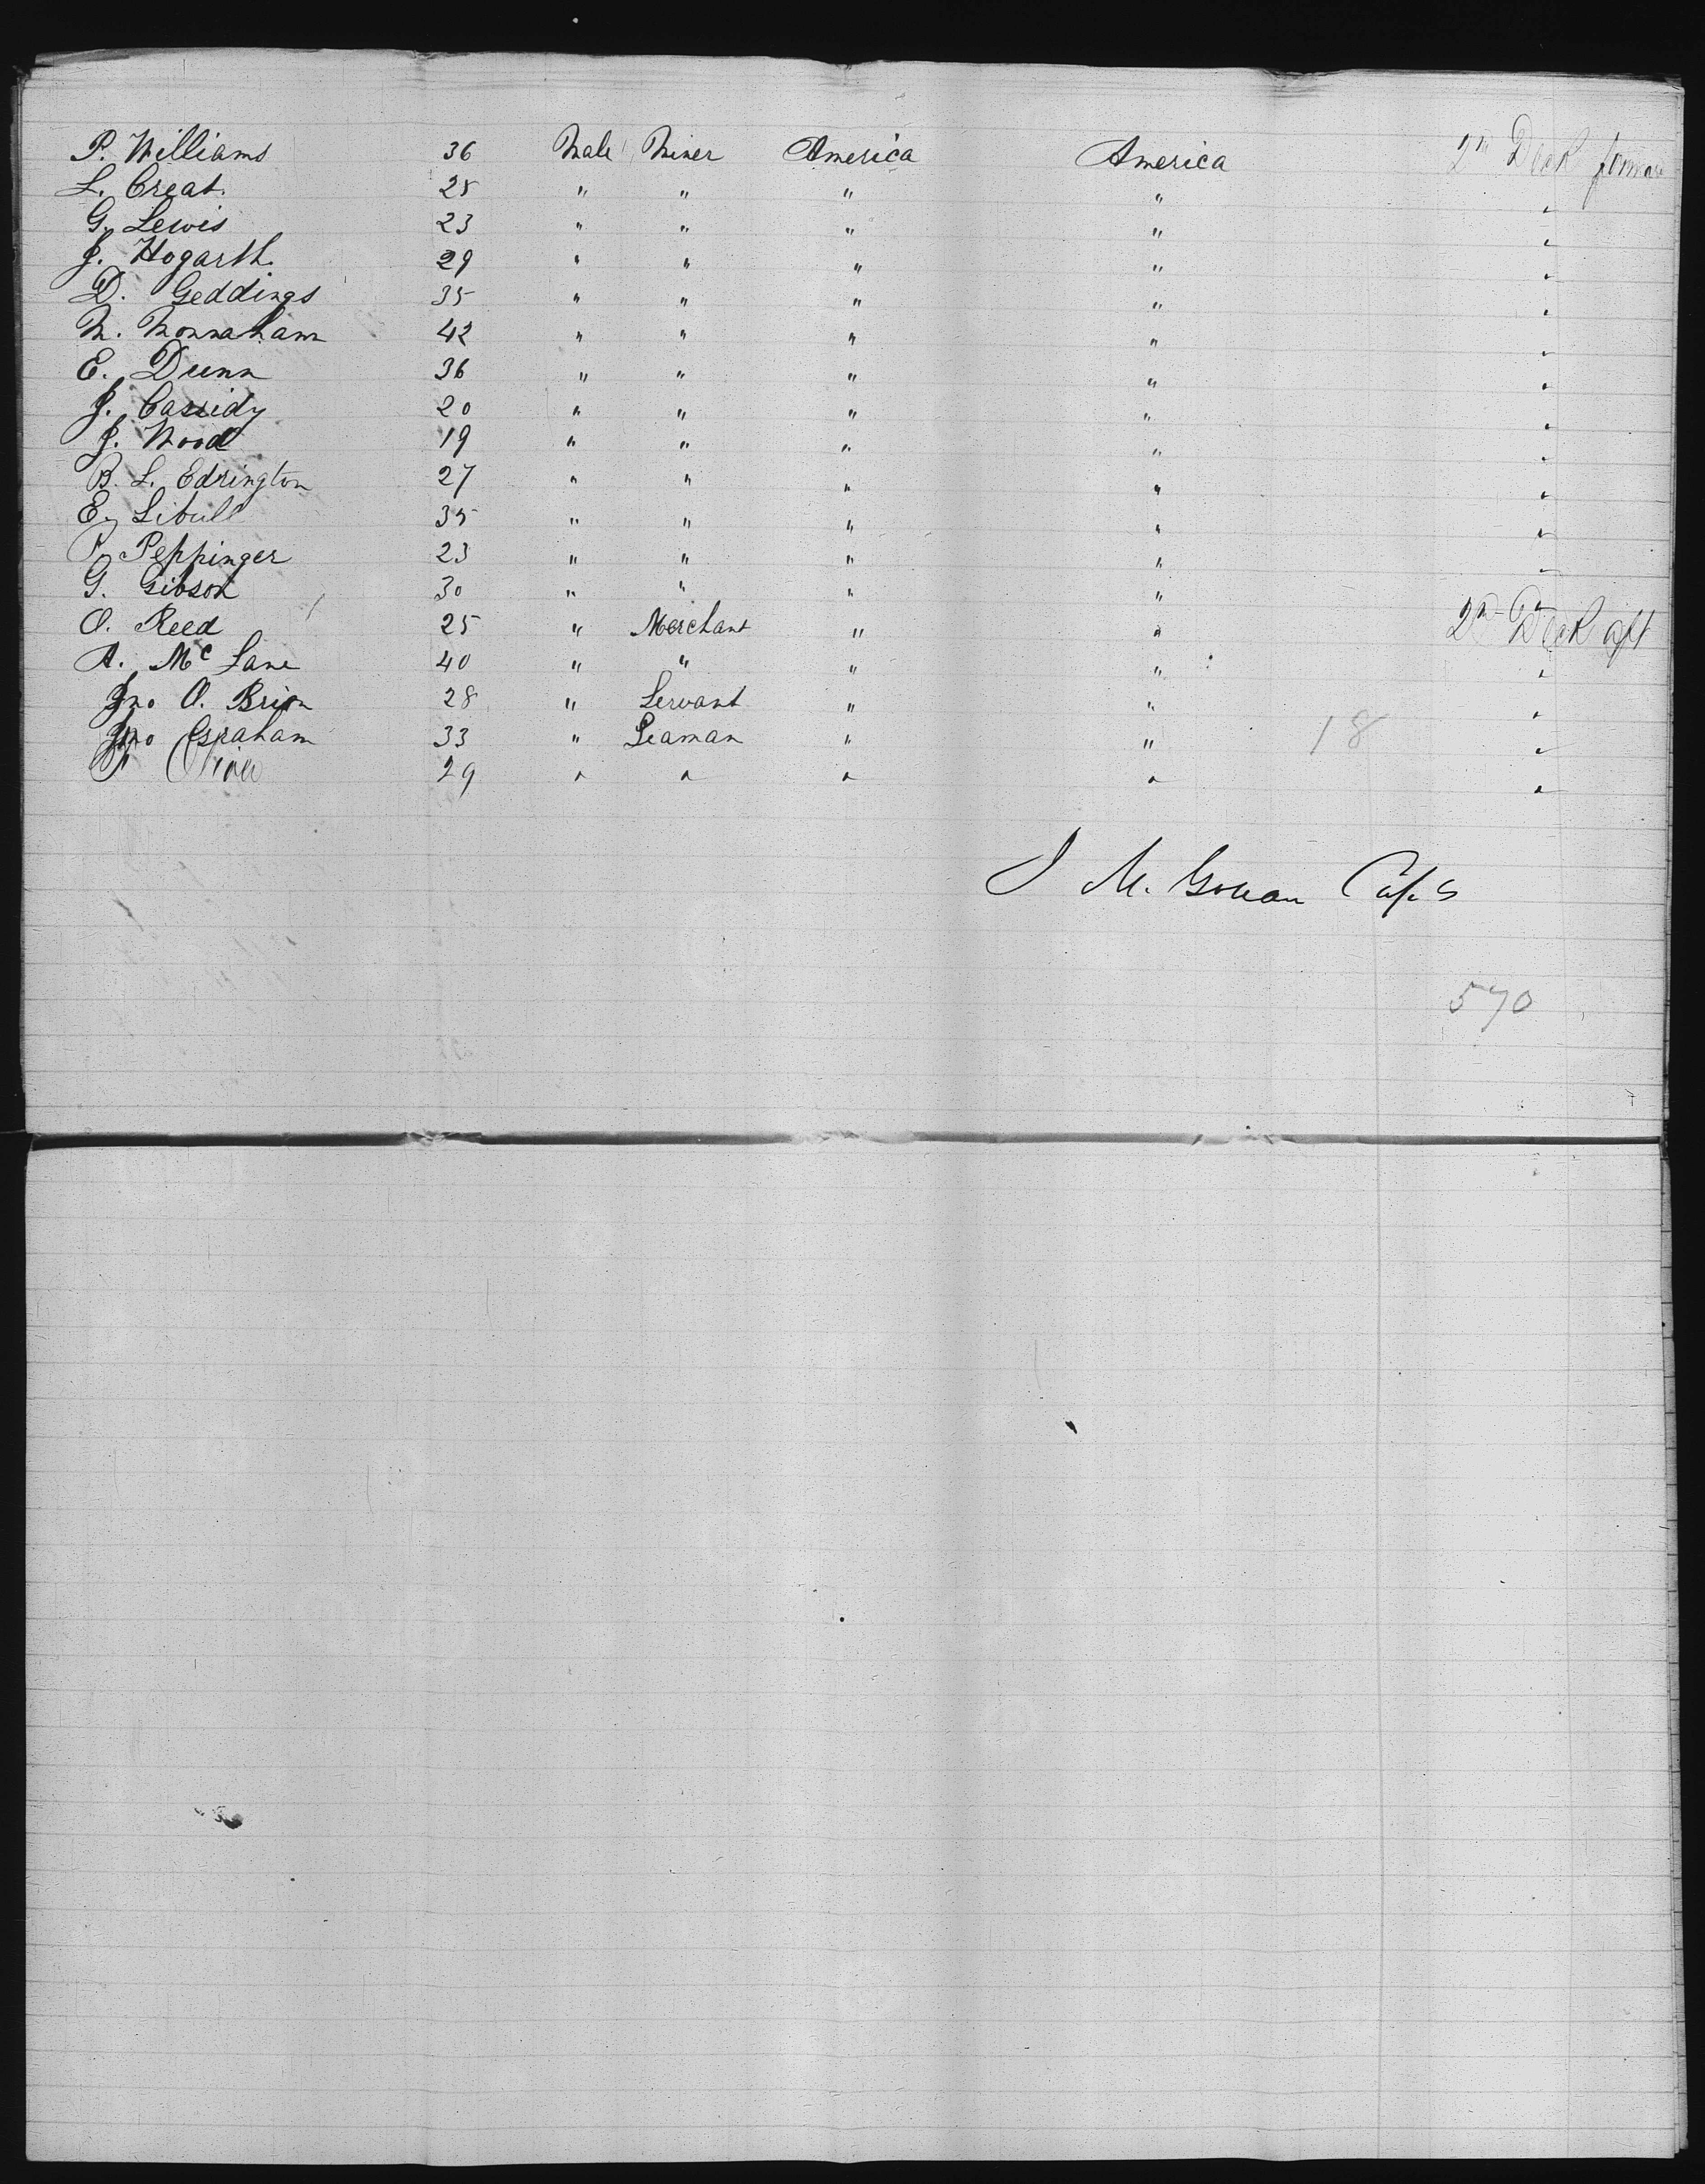 P. Williams 36 Male Miner America America 2nd Deck forward
L. Creat. 28 " " " " "
G. Lewis 23 " " " " "
J. Hogarth. 29 " " " " "
D. Geddings 35 " " " " "
M. Monnahann 42 " " " " "
E. Dunn 36 " " " " "
J. Cassidy 20 " " " " "
J. Wood 19 " " " " "
B. L. Edrington 27 " " " " "
E. Libull 35 " " " " "
P. Peppinger 23 " " " " "
G. Gibson 30 " " " " "
O. Reed 25 " Merchant " " 2nd Deck aft
A. Mc Lane 40 " " " " "
Jno O. Brion 28 " Servant " " "
Jno Graham 33 " Seaman " " 18 "
29 " " " " "
J M. Gowan Capt
570